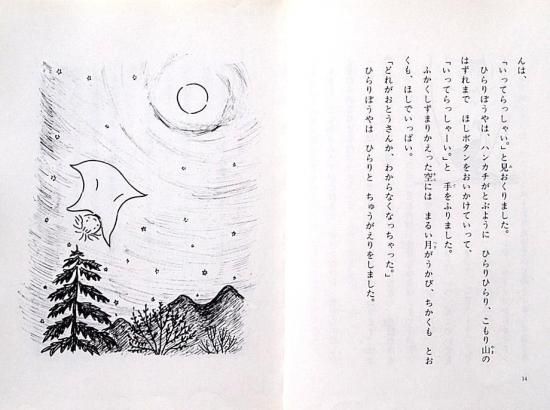 んは、
「いってらっしゃい。」と見おくりました。
ひらりぼうやは、ハンカチがとぶように　ひらりひらり、こもり山の
はずれまで　ほしボタンをおいかけていって、
「いってらっしゃーい。」と　手をふりました。
ふかくしずまりかえった空には　まるい月がうかび、ちかくも　とお
くも、ほしでいっぱい。
「どれがおとうさんか、わからなくなっちゃった。」
ひらりぼうやは　ひらりと　ちゅうがえりをしました。
14